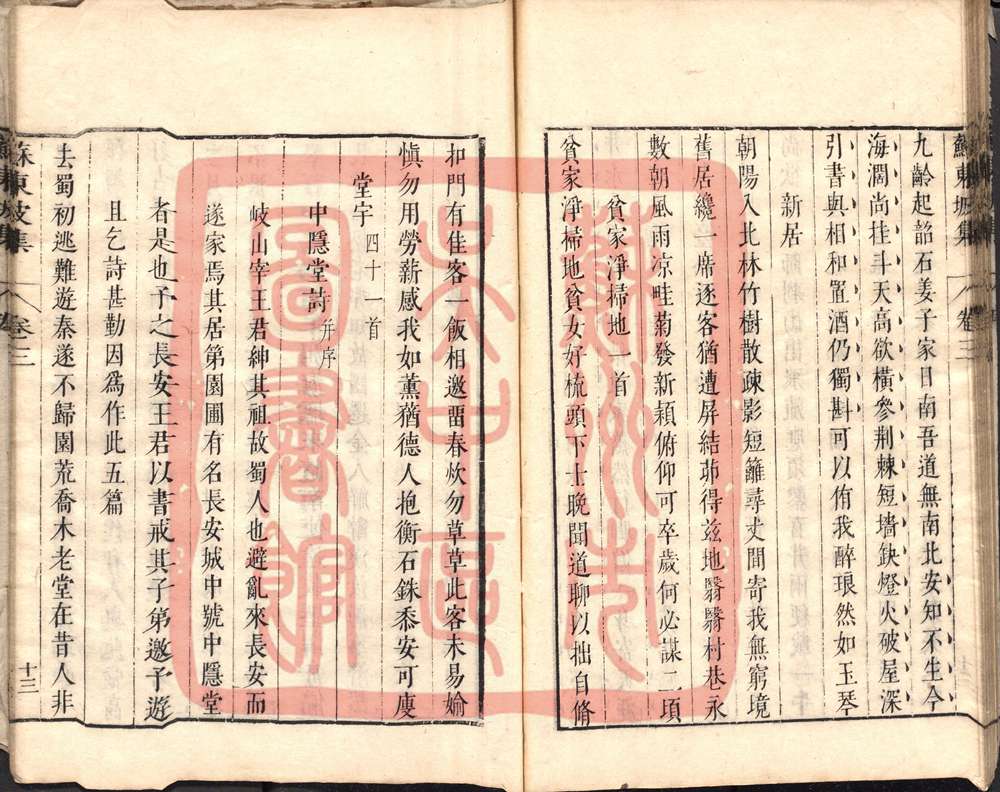 蘇東坡集 卷三
九齡起韶石姜子家日南吾道無南北安知不生今
海濶尚挂斗天高欲橫參荆棘短墻缺燈火破屋深
引書與相和置酒仍獨斟可以侑我醉琅然如玉琴
新居
朝陽入北林竹樹散疎影短籬尋丈間寄我無窮境
舊居纔一席逐客猶遭屏結茆得兹地翳翳村巷永
數朝風雨凉畦菊發新穎俯仰可卒歲何必謀二頃
貧家淨掃地一首
貧家淨掃地貧女好梳頭下士晚聞道聊以拙自脩
扣門有佳客一飯相邀畱春炊勿草草此客未易媮
愼勿用勞薪感我如薰蕕德人抱衡石銖黍安可廋
堂宇 四十一首
中隱堂詩 并序
岐山宰王君紳其祖故蜀人也避亂來長安而
遂家焉其居第園圃有名長安城中號中隱堂
者是也予之長安王君以書戒其子弟邀予遊
且乞詩甚勤因爲作此五篇
去蜀初逃難遊秦遂不歸園荒喬木老堂在昔人非
蘇東坡集 卷三
十三
蘇州大學圖書館